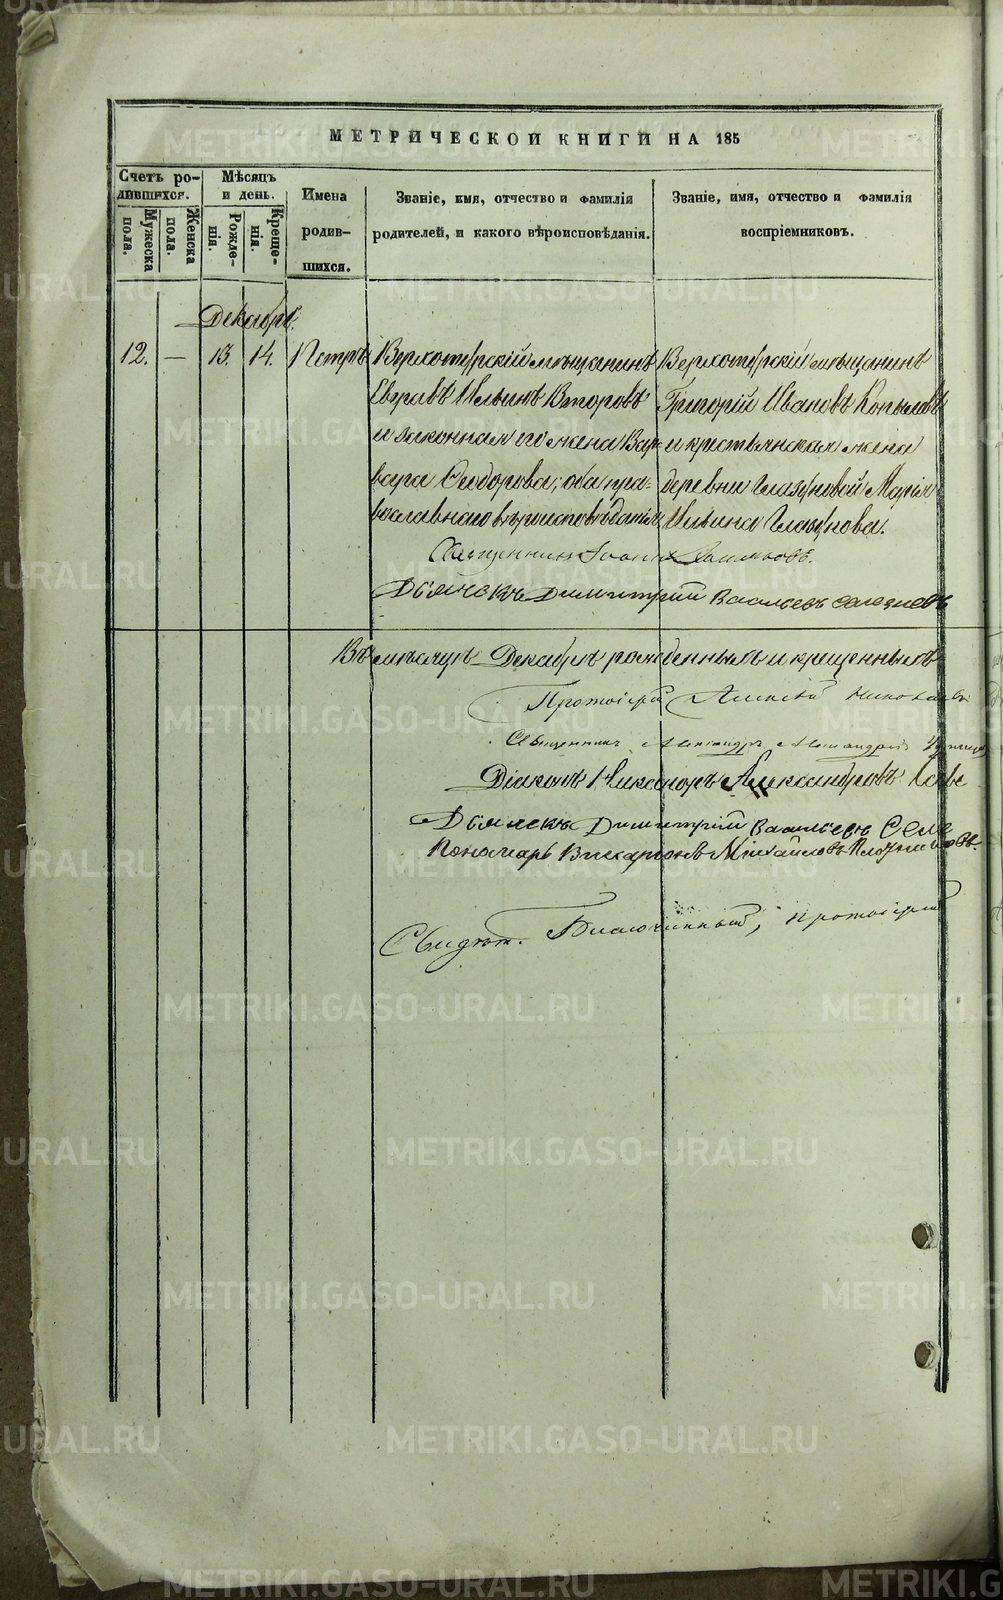 МЕТРИЧЕСКОЙ КНИГИ НА 185
Счетъ ро-
дившихся.
Мѣсяцъ
и день.
Имена
родив-
шихся.
Званіе, имя, отчество и фамилія
родителей, и какого вѣроисповѣданія.
Званіе, имя, отчество и фамилія
воспріемниковъ.
Мужеска
пола.
Женска
пола.
Рожде-
нія.
Креще-
нія.
Декабрь.
12. — 13. 14. Петръ
Верхотурскій мѣщанинъ
Евграфъ Ильинъ Второвъ
и законная его жена Вар-
вара Ѳеодорова; оба пра-
вославнаго вѣроисповѣданія
Верхотурскій мѣщанинъ
Григорій Ивановъ Копыловъ
и крестьянская жена
деревни Глазуновой Марія
Ильина Глазунова.
Священникъ Іоаннъ
Дьячекъ Димитрій Васильевъ Селезневъ
Въ мѣсяцѣ Декабрѣ рожденнымъ и крещеннымъ
Протоіерей Алексій Николаевъ
Священникъ Александръ
Діаконъ Никаноръ Александровъ
Дьячекъ Димитрій Васильевъ Селе
Пономарь Михайловъ
Свидѣт. Благочинный, протоіерей
METRIKI.GASO-URAL.RU